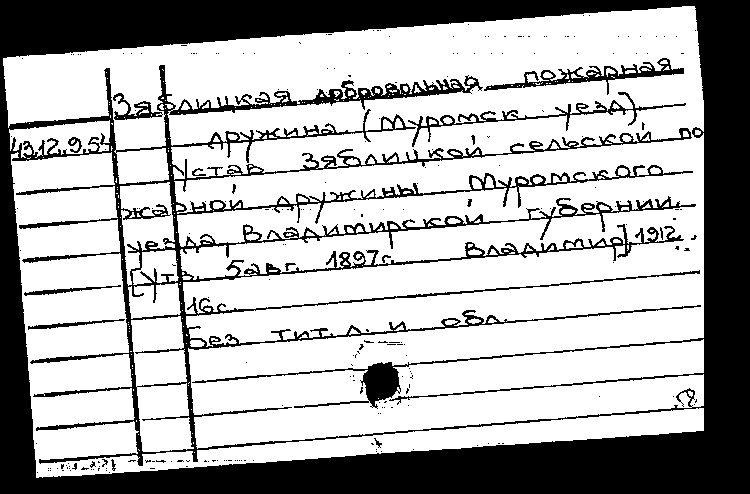 Зяблицкая добровольная пожарная
43.12.9.54 дружина (Муромск. уезд).
Устав Зяблицкой сельской по
жарной дружины Муромского
уезда, Владимирской губернии.
[Утв. 5 авг. 1897г. Владимир], 1912.
16с.
Без тит. л. и обл.